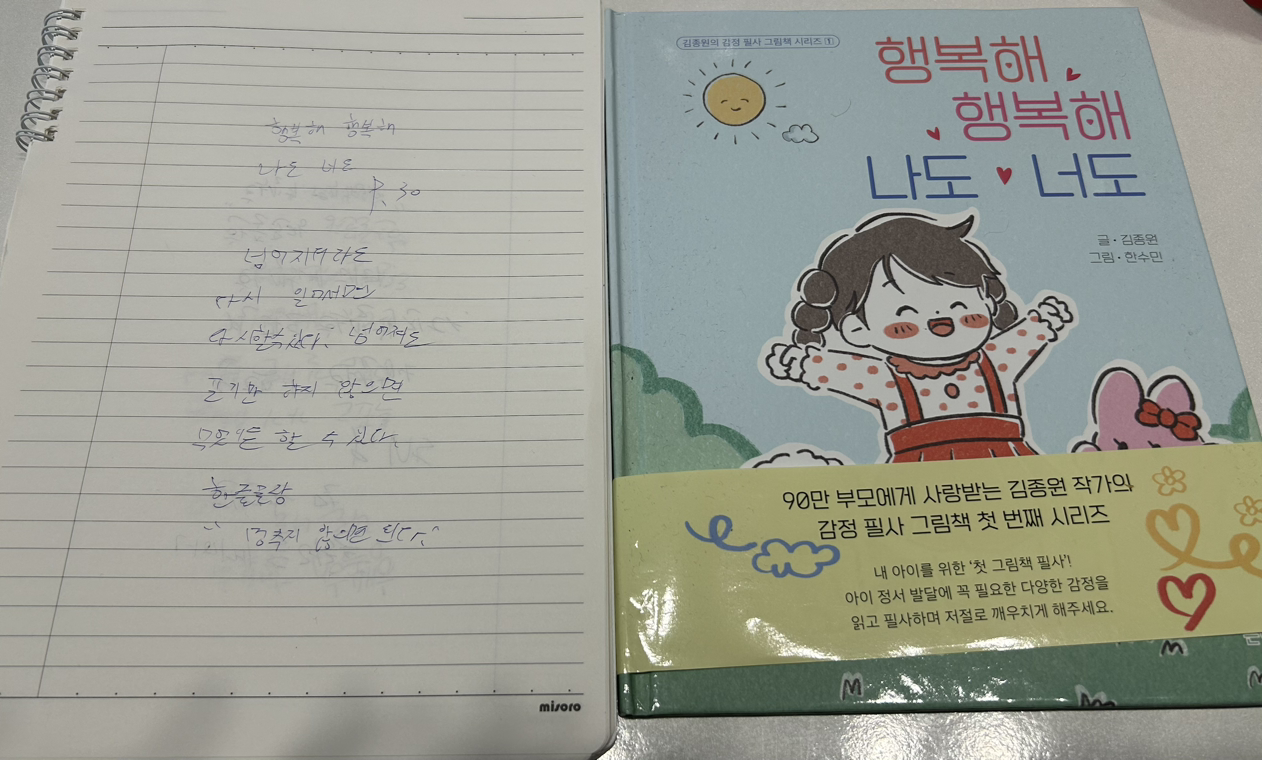 행복해 행복해
나도 너도
P. 30
넘어지더라도
다시 일어서면
다시 할 수 있다. 넘어져도
포기만 하지 않으면
무엇이든 할 수 있다.
한줄문장
"멈추지 않으면 된다."
misoro
김종원의 감정 필사 그림책 시리즈 1
행복해
행복해
나도 너도
글·김종원
그림·한수민
90만 부모에게 사랑받는 김종원 작가의
감정 필사 그림책 첫 번째 시리즈
내 아이를 위한 '첫 그림책 필사'!
아이 정서 발달에 꼭 필요한 다양한 감정을
읽고 필사하며 저절로 깨우치게 해주세요.